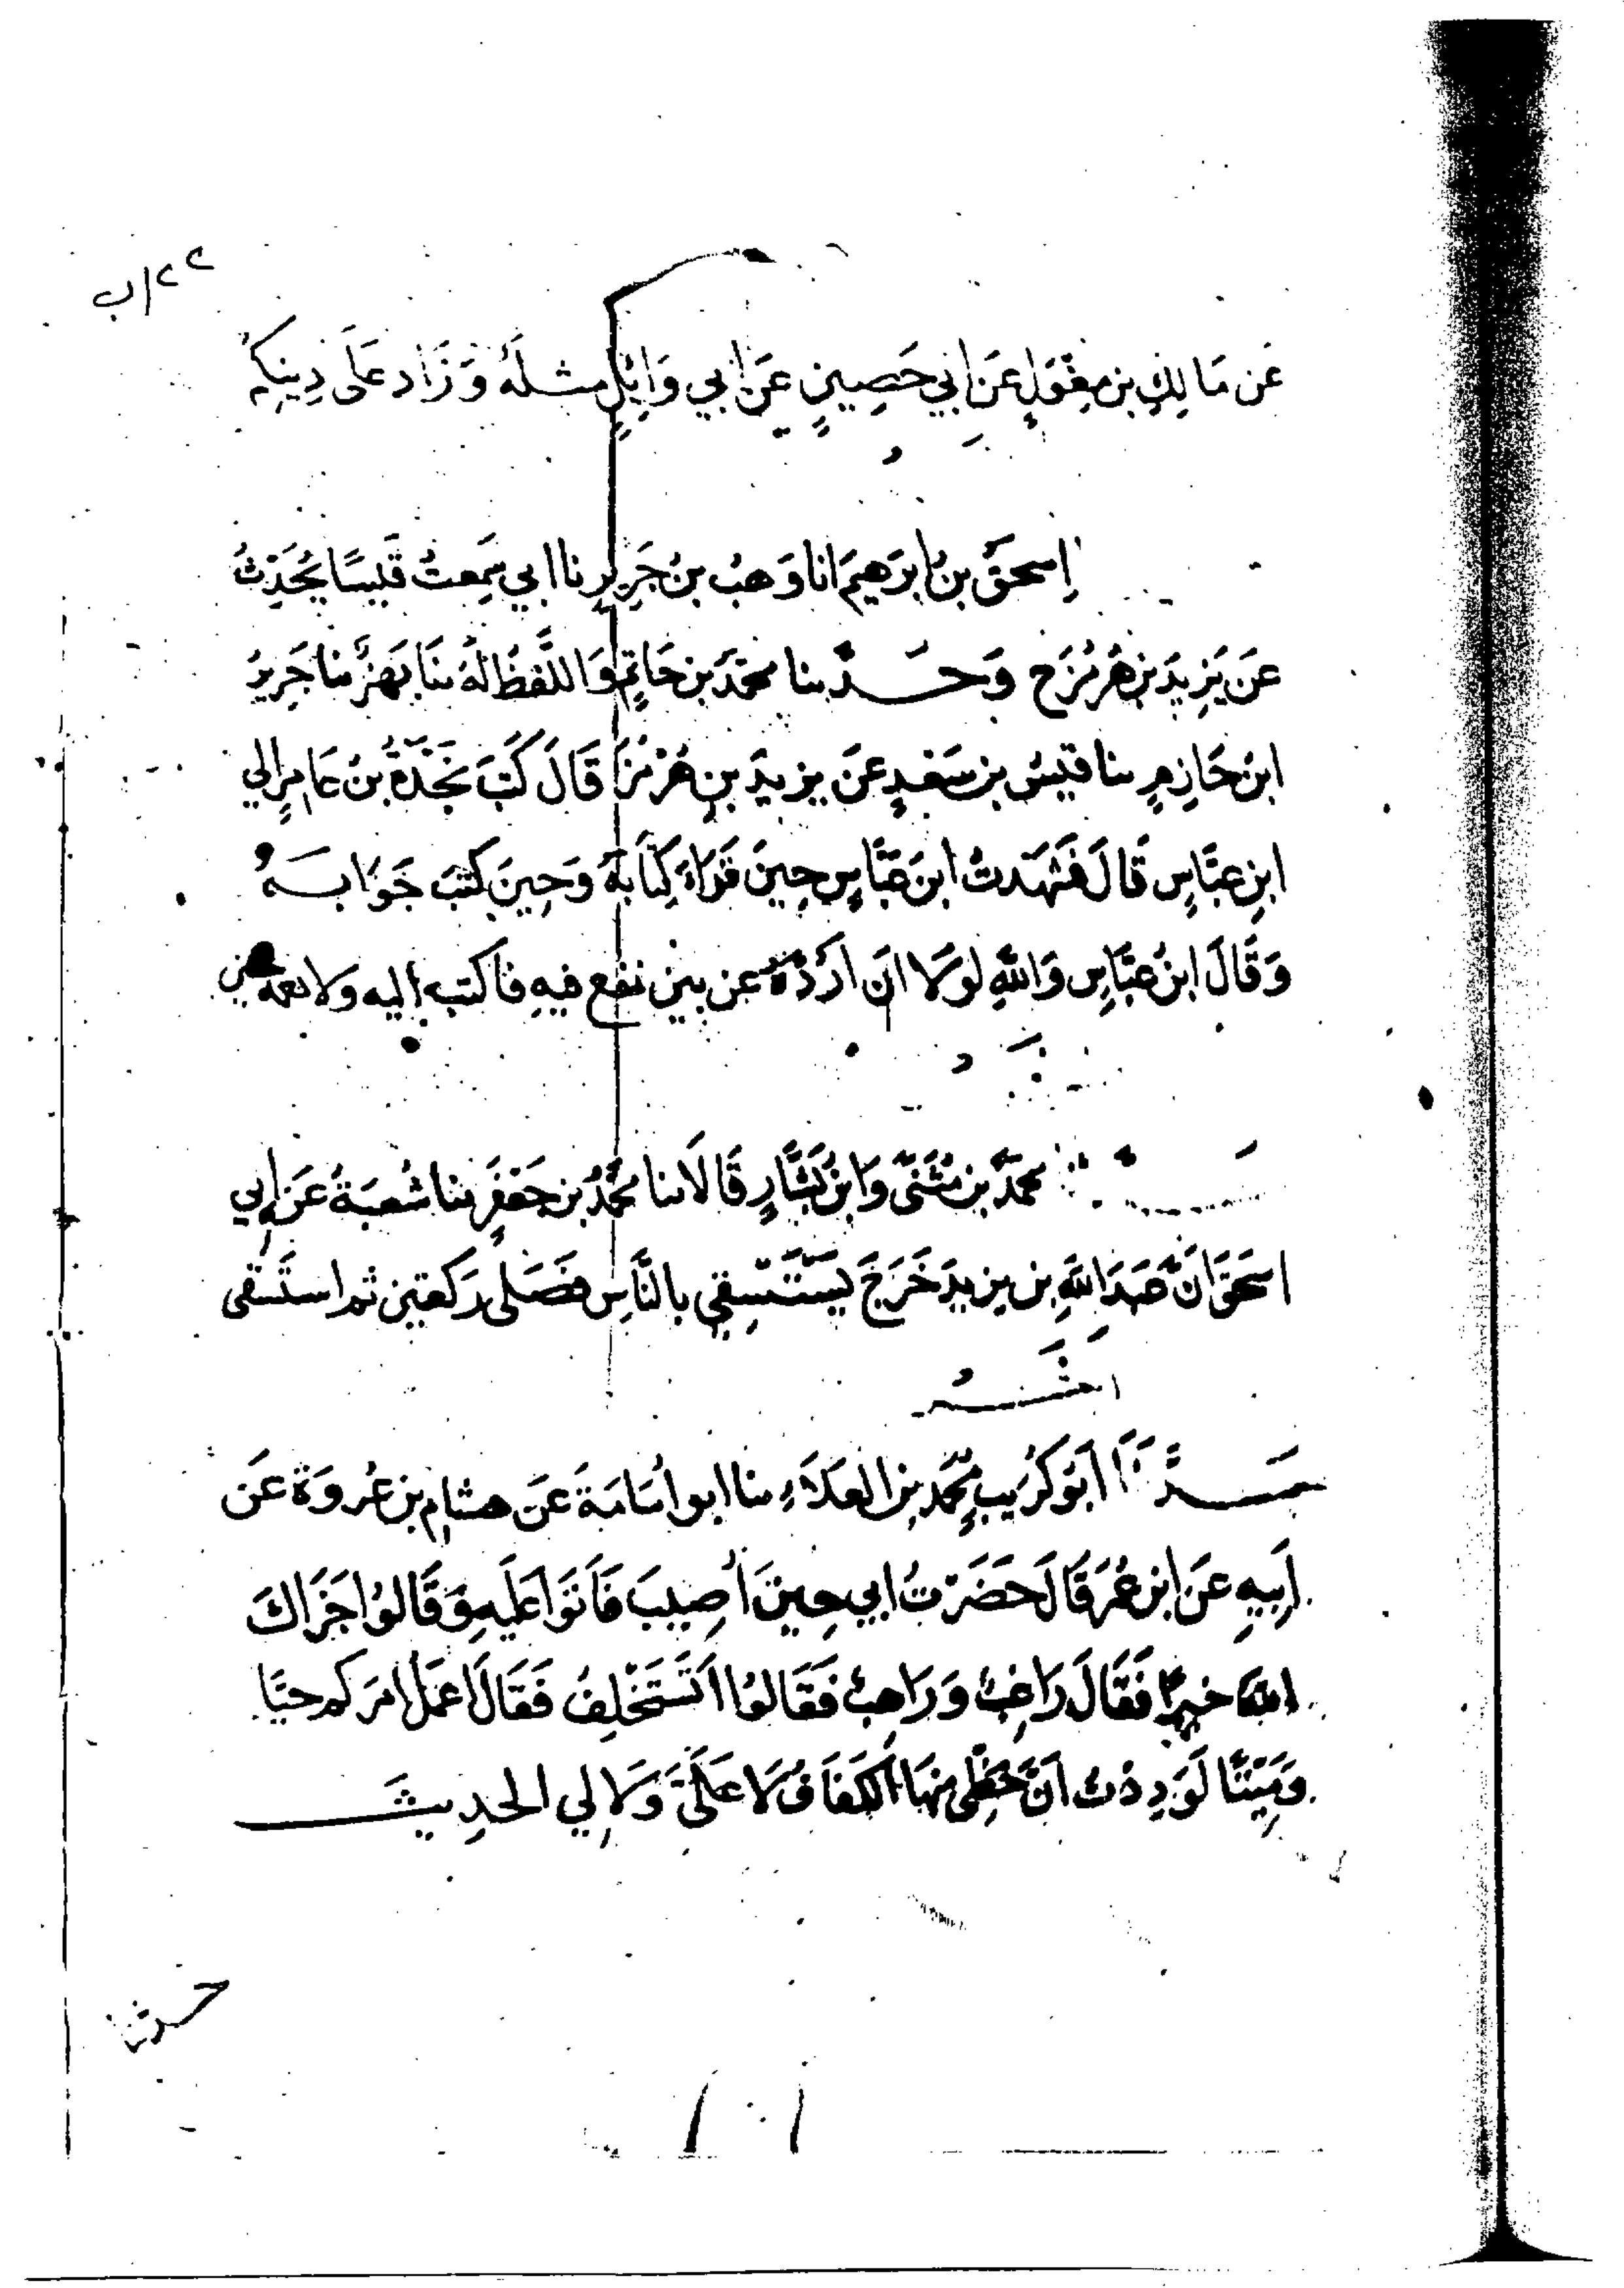 ٢٢/ب
عَن مَالِكِ بن مِغْوَلٍ عَنَ ابي حَصِينٍ عَنَ ابي وَائِلٍ مثلَهُ وَزَادَ عَلَى دِينِكُم
إِسحقُ بنُ ابرَهيمَ انا وَهبُ بنُ جَرِيرٍ نا ابي سَمِعتُ قَيسًا يُحَدِّثُ
عَن يَزِيدَ بنِ هُرمُزَ ح وَحَدَّثنا محمَّدُ بن حَاتِمٍ وَاللَّفظُ لَهُ ثنَا بَهزٌ ثنا جَرِيرُ
ابنُ حَازِمٍ ثنا قيسُ بن سَعْدٍ عَن يزيدَ بنِ هُرْمُزَ قَالَ كَتَبَ نَجْدَةُ بنُ عَامِرٍ الي
ابنِ عبَّاسٍ قَالَ فَشَهدتُ ابنَ عَبَّاسٍ حِينَ قَرَاءَ كِتَابَهُ وَحِينَ كتبَ جَوَابَهُ
وَقَالَ ابنُ عبَّاسٍ وَاللهِ لولَا ان اَرُدَّهُ عن نتنٍ نقع فيهِ فا كتبت اليه ولا نعمة عين
محمَّدُ بن مُثَنَّى وَابنُ بَشَّارٍ قَالَا ثنا محمَّدُ بن جَعْفَرٍ ثنا شُعبَةُ عَن ابي
اسحَقَ اَنَّ عَبدَ اللَّهِ بن يزيدَ خَرَجَ يَسْتَسْقِي بالنَّاسِ فصَلى رَكعتين ثم استَسقى
حَدَّثَنَا اَبُو كُرَيبٍ مُحَمَّد بن العَلَاءِ ثنا ابو اُسَامَةَ عَن هشامِ بن عُروَةَ عَن
اَبِيهِ عَن ابنِ عُمَرَ قَالَ حَضَرْتُ ابي حِينَ اُصِيبَ فَاَثنَوا عَلَيهِ وَقَالُوا جَزَاكَ
اللهُ خيرًا فَقَالَ رَاغِبٌ وَرَاهِبٌ فَقَالوُا اَسْتَخْلِفْ فَقَالَ اَعمَلُ امرَكم حيًّا
وَمَيِّتًا لَوَدِدْتُ اَنَّ حَظِّى منهَا الكَفَافُ لَا عَلَىَّ وَلَا لِي الحدِيثَ
حدثنا